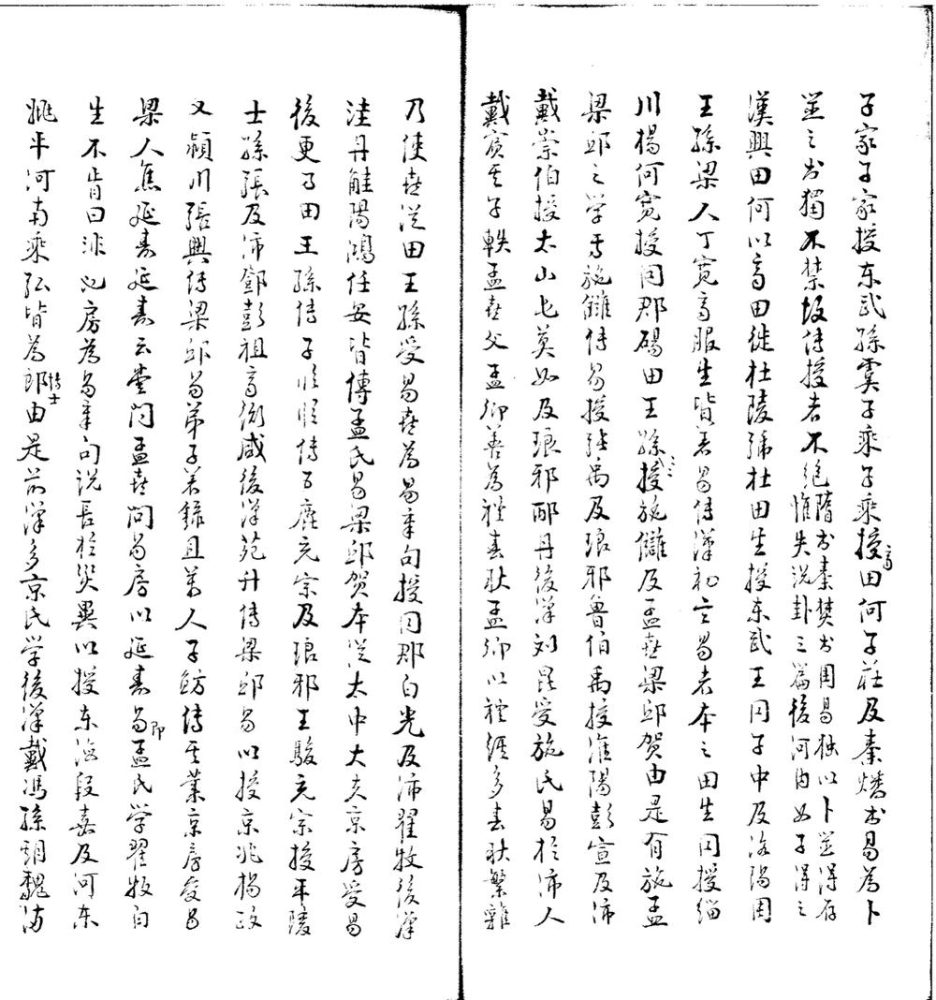 子家子家授东武孫虞子乘子乘授齊田何子莊及秦燔书易為卜
筮之书獨不禁故传授者不绝隋书秦焚书周易独以卜筮得存惟失说卦三篇後河内女子得之
漢興田何以齊田徙杜陵號杜田生授东武王同子中及洛陽周
王孫梁人丁宽齊服生皆著易传漢初言易者本之田生同授淄
川楊何宽授同郡碭田王孫王孫授施讎及孟喜梁邱贺由是有施孟
梁邱之学焉施讎传易授張禹及琅邪鲁伯禹授淮陽彭宣及沛
戴崇伯授太山毛莫如及琅邪邴丹後漢刘昆受施氏易於沛人
戴宾其子軼孟喜父孟卿善為禮春秋孟卿以禮經多春秋繁雜
乃使喜从田王孫受易喜為易章句授同郡白光及沛翟牧後漢
洼丹觟陽鴻任安皆傳孟氏易梁邱贺本从太中大夫京房受易
後更事田王孫传子临临传五鹿充宗及琅邪王駿充宗授平陵
士孫張及沛鄧彭祖齊衡咸後漢范升传梁邱易以授京兆楊政
又潁川張興传梁邱易弟子著錄且萬人子魴传其業京房受易
梁人焦延寿延寿云尝问孟喜问易房以延寿易即孟氏学翟牧白
生不肯曰非也房為易章句说長於災異以授东海段嘉及河东
姚平河南乘弘皆為郎博士由是前漢多京氏学後漢戴馮孫期魏满